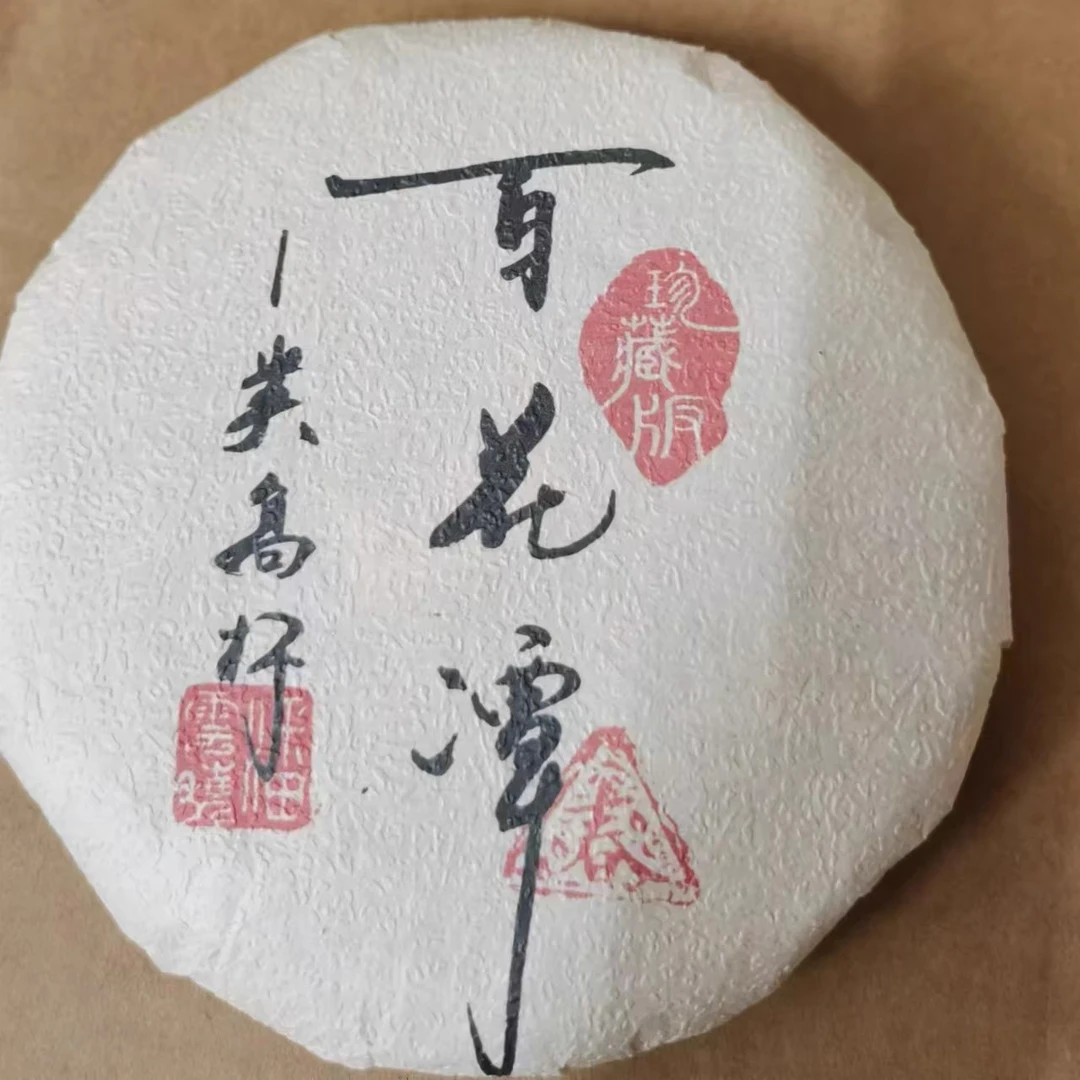 百花潭
珍藏版
一类高杆